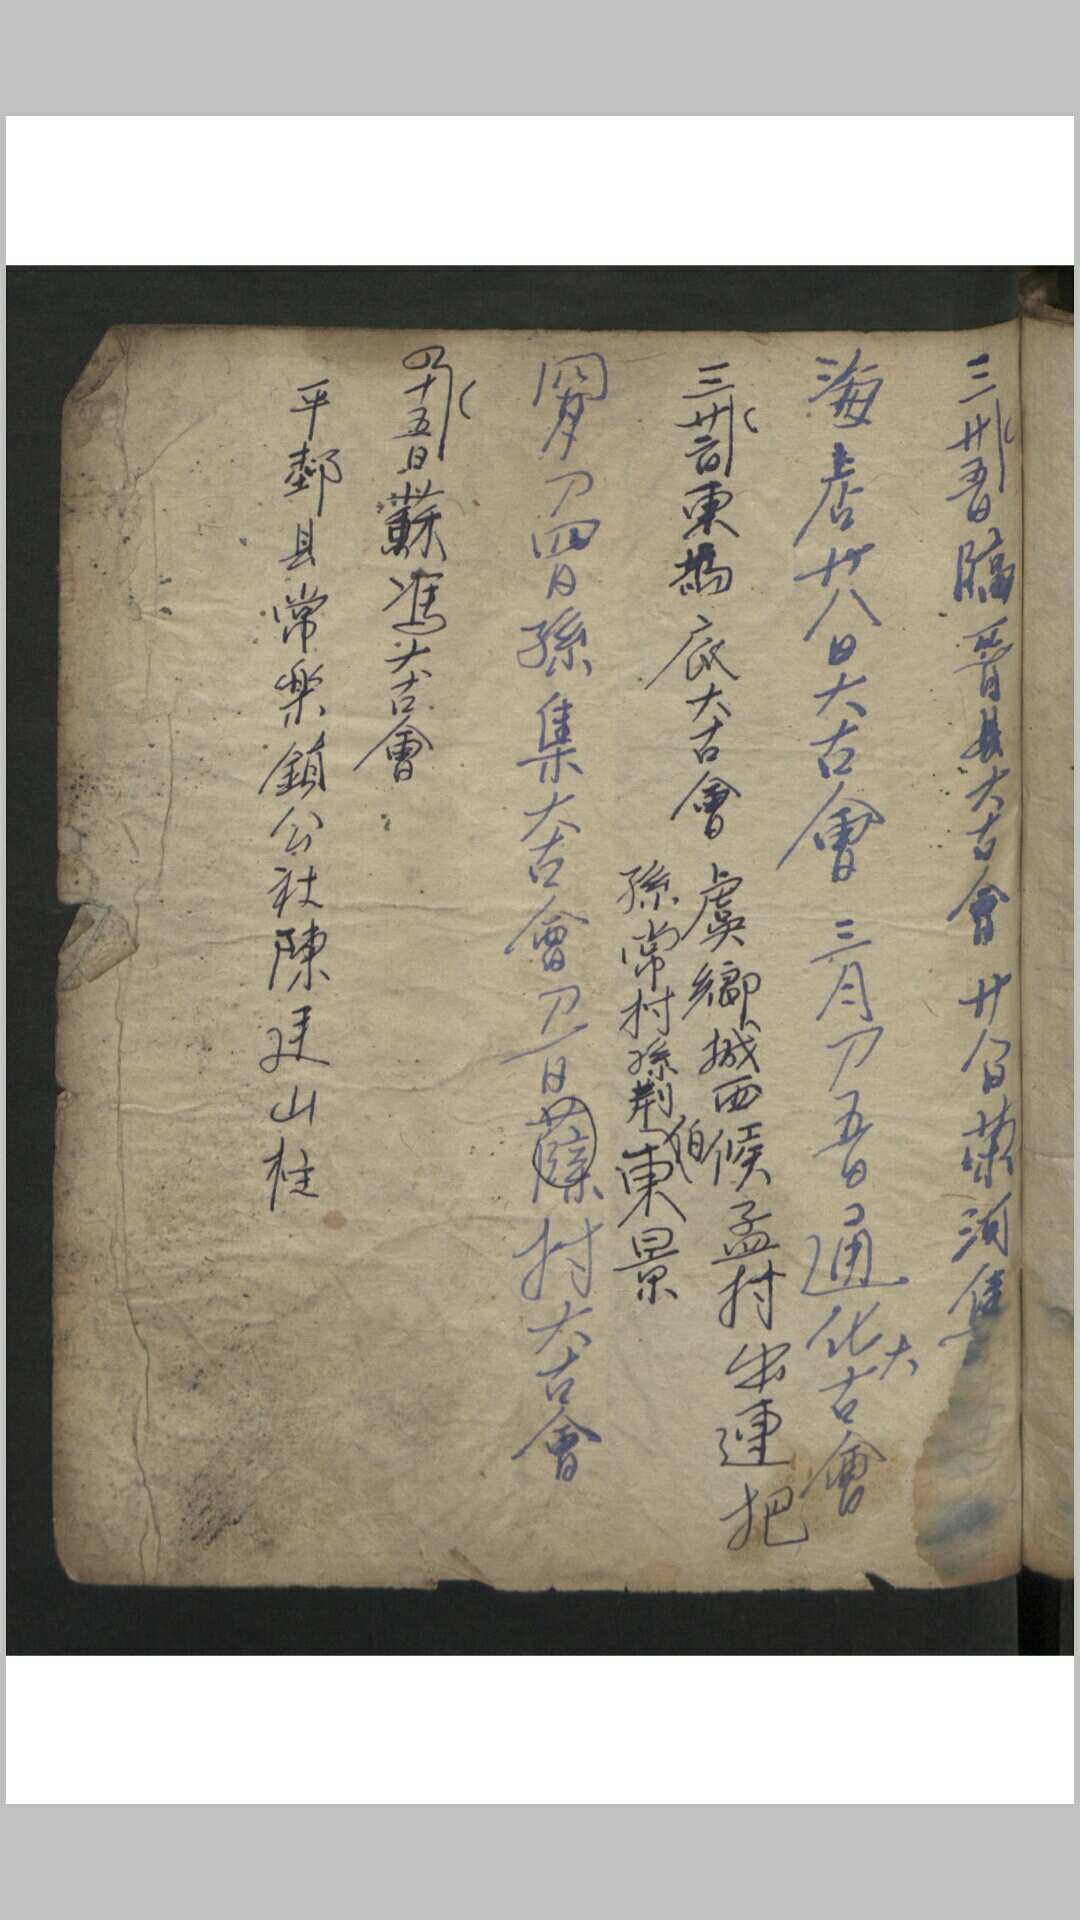 三月廿五日臨晋县大古會 廿八日榮河集
海店廿八日大古會 三月刀五日通化大古會
三月廿六日東 大古會 虞鄉城西候孟村出連把
孫常村孫荆伯東景
四月刀四日孫集大古會刀一日薛村大古會
四月十五日蘇馮大古會
平 县常樂鎮公社陳廷山柱